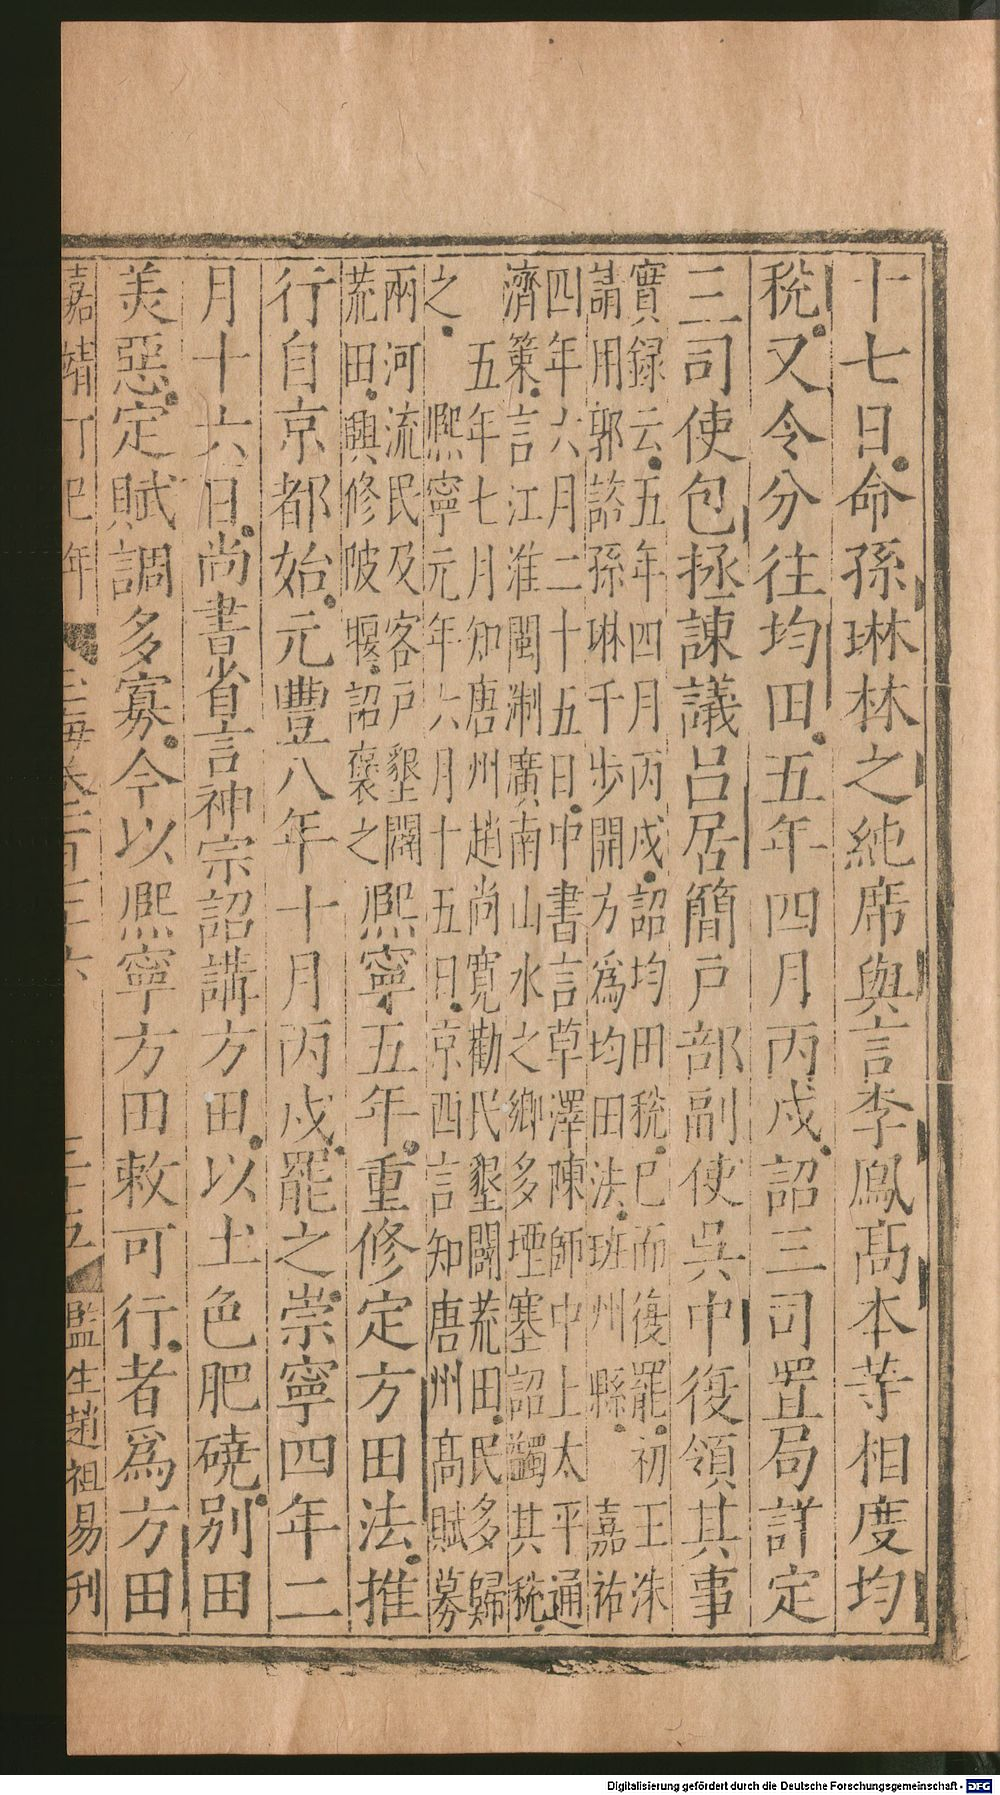 十七日命孫琳林之純席與言李鳳高本等相度均
稅又令分往均田五年四月丙戍詔三司置局詳定
三司使包拯諫議呂居簡戶部副使吳中復領其事
實録云五年四月丙戍詔均田稅已而復罷初王洙
請用郭諮孫琳千步開方爲均田法班州縣 嘉祐
四年六月二十五日中書言草澤陳師中上太平通
濟策言江淮閩淛廣南山水之鄉多堙塞詔蠲其稅
之 五年七月知唐州趙尚寬勸民墾闢荒田民多歸
熈寧元年六月十五日京西言知唐州高賦募
兩河流民及客戶墾闢
荒田興修陂堰詔褒之
熈寧五年重修定方田法推
行自京都始元豐八年十月丙戍罷之崇寧四年二
月十六日尚書省言神宗詔講方田以土色肥磽別田
美惡定賦調多寡今以熈寧方田敕可行者爲方田
嘉靖丁巳年 玉海卷 百 十六 三十五 監生趙祖易刊
Digitalisierung gefördert durch die Deutsche Forschungsgemeinschaft - DFG